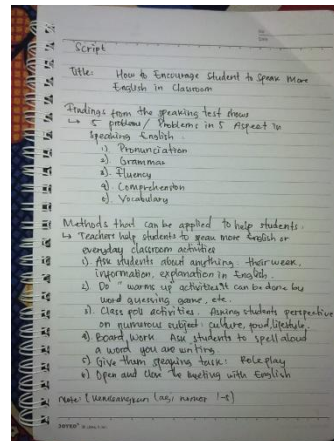 Script
Title: How to Encourage Student to Speak More
English in Classroom
Findings from the speaking test shows
↳ 5 problems / Problems in 5 Aspect in
Speaking English
1) Pronunciation
2) Grammar
3) Fluency
4) Comprehension
5) Vocabulary
Methods that can be applied to help students.
↳ Teachers help students to speak more English or
everyday classroom activities
1). Ask students about anything: their week,
information, explanation in English.
2) Do "warms up activities" it can be done by
word guessing game, etc.
3). Class poll activities. Asking students perspective
on numerous subject: culture, food, lifestyle.
4) Board work Ask students to spell aloud
a word you are writing
5) Give them speaking task: Role play
6) Open and close the meeting with English
Note: